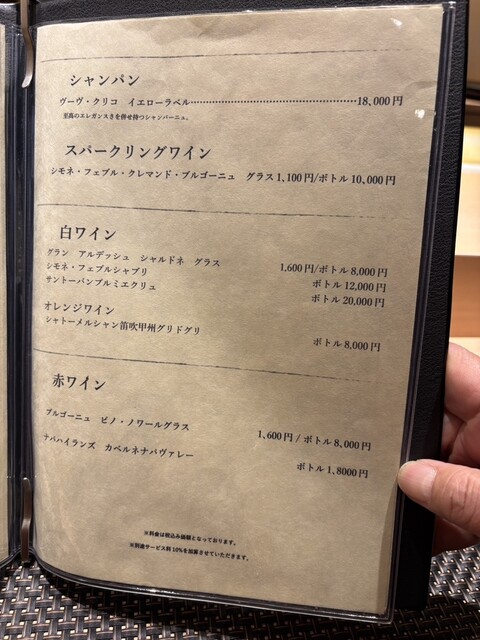 シャンパン
ヴーヴ・クリコ イエローラベル……………………………………18,000円
至高のエレガンスさを併せ持つシャンパーニュ。
スパークリングワイン
シモネ・フェブル・クレマンド・ブルゴーニュ グラス1,100円/ボトル10,000円
白ワイン
グラン アルデッシュ シャルドネ グラス 1,600円/ボトル8,000円
シモネ・フェブルシャブリ ボトル12,000円
サントーバンプルミエクリュ ボトル20,000円
オレンジワイン
シャトーメルシャン笛吹甲州グリドグリ ボトル8,000円
赤ワイン
ブルゴーニュ ピノ・ノワールグラス 1,600円 / ボトル8,000円
ナパハイランズ カベルネナパヴァレー ボトル1,8000円
※料金は税込み価額となっております。
※別途サービス料10%を加算させていただきます。